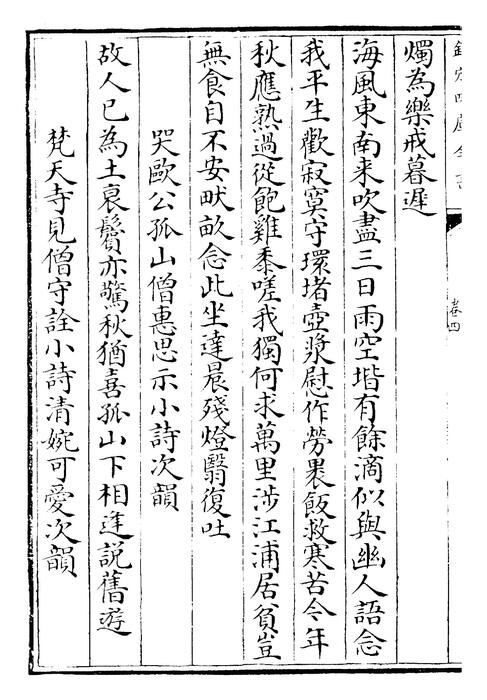 欽定四庫全書
卷四
燭為樂戒暮遲
海風東南来吹盡三日雨空堦有餘滴似與幽人語念
我平生歡寂寞守環堵壺漿慰作勞裹飯救寒苦今年
秋應熟過從飽雞黍嗟我獨何求萬里涉江浦居貧豈
無食自不安畎畝念此坐達晨殘燈翳復吐
哭歐公孤山僧惠思示小詩次韻
故人已為土衰鬢亦驚秋猶喜孤山下相逢説舊遊
梵天寺見僧守詮小詩清婉可愛次韻